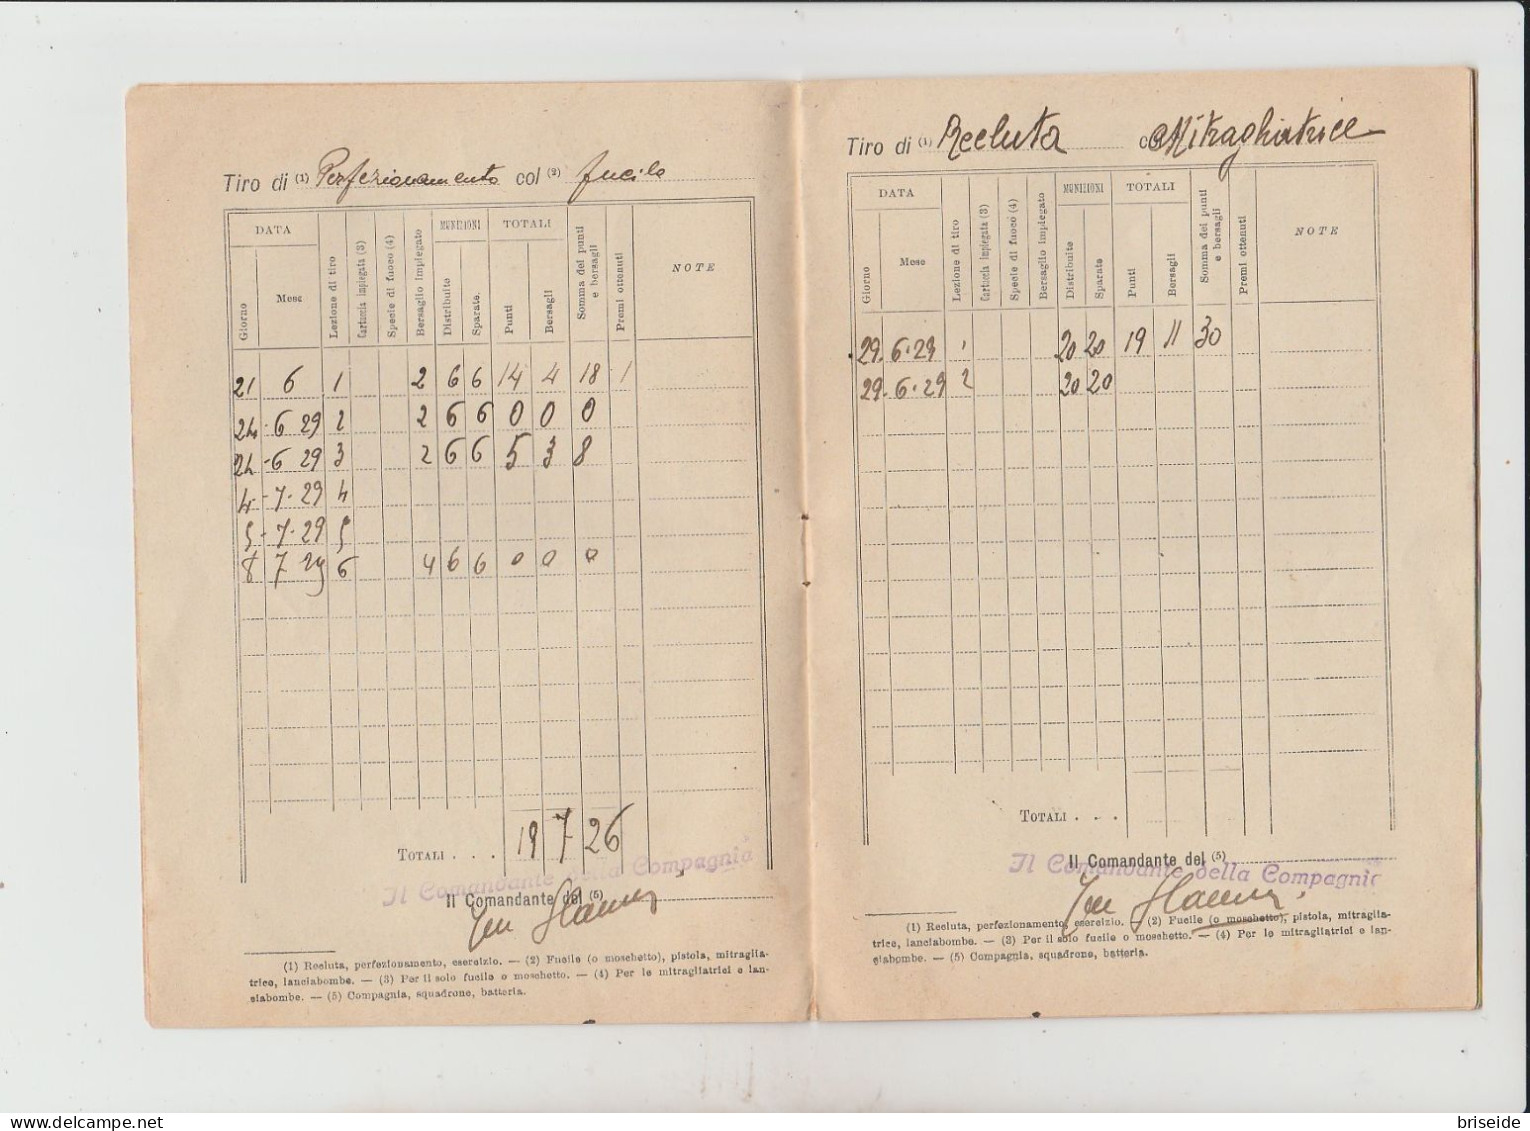 Tiro di (1) Perfezionamento col (2) fucile
DATA MUNIZIONI TOTALI
Giorno Mese Lezione di tiro Cartuccia impiegata (3) Specie di fuoco (4) Bersaglio impiegato Distribuite Sparate. Punti Bersagli Somma dei punti e bersagli Premi ottenuti NOTE
21 6 1 2 6 6 14 4 18 1
24 - 6 29 2 2 6 6 0 0 0
24 - 6 29 3 2 6 6 5 3 8
4 - 7 - 29 4
5 - 7 - 29 5
8 7 29 6 4 6 6 0 0 0
TOTALI . . . 19 7 26
Il Comandante della Compagnia
Il Comandante del (5)
(1) Recluta, perfezionamento, esercizio. — (2) Fucile (o moschetto), pistola, mitraglia-
trice, lanciabombe. — (3) Per il solo fucile o moschetto. — (4) Per le mitragliatrici e lan-
ciabombe. — (5) Compagnia, squadrone, batteria.
Tiro di (1) Recluta c Mitragliatrice
DATA MUNIZIONI TOTALI
Giorno Mese Lezione di tiro Cartuccia impiegata (3) Specie di fuoco (4) Bersaglio impiegato Distribuite Sparate Punti Bersagli Somma dei punti e bersagli Premi ottenuti NOTE
29. 6 . 29 1 20 20 19 11 30
29. 6 . 29 2 20 20
TOTALI . . .
Il Comandante del (5)
Il Comandante della Compagnia
(1) Recluta, perfezionamento, esercizio. — (2) Fucile (o moschetto), pistola, mitraglia-
trice, lanciabombe. — (3) Per il solo fucile o moschetto. — (4) Per le mitragliatrici e lan-
ciabombe. — (5) Compagnia, squadrone, batteria.
briseide